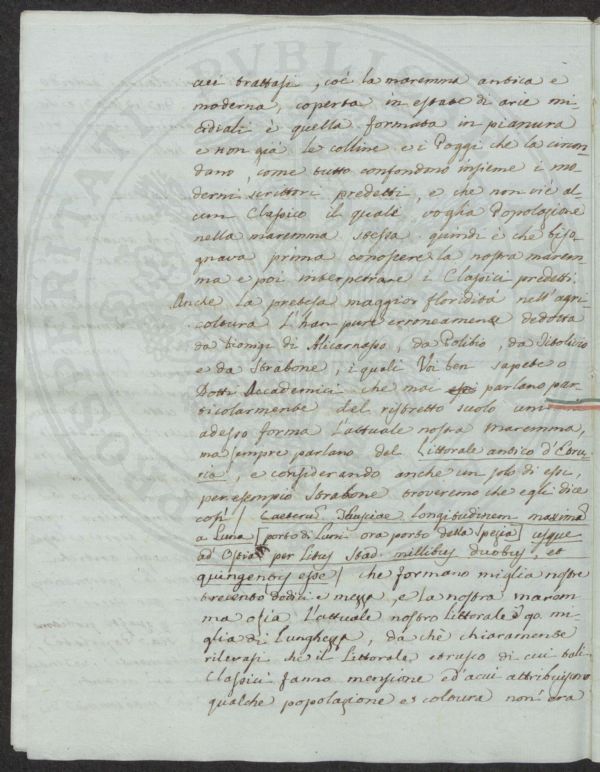 cui trattasi, cioè la maremma antica e
moderna, coperta in estate di arie mi-
cidiali è quella formata in pianura
e non già le colline e i Poggi che la circon-
dano, come tutto confondono insieme i mo-
derni scrittori predetti, e che non vi è al-
cun Classico il quale voglia Popolazione
nella maremma stessa quindi è che biso-
gnava prima conoscere la nostra marem-
ma e poi interpetrare i Classici predetti.
Anche la pretesa maggior floridità nell'agri-
coltura l'han pure erroneamente dedotta
da Dionigi di Alicarnasso, da Polibio, da Titolivio
e da Strabone, i quali Voi ben sapete o
Dotti Accademici che mai parlano par-
ticolarmente del ristretto suolo
adesso forma l'attuale nostra maremma,
ma sempre parlano del Littorale antico d'Etru-
ria, e considerando anche un solo di essi,
per esempio Strabone troveremo che egli dice
così / Caeterum Thusciae longitudinem maxima
a Luna [porto di Luni ora porto della Spezia] usque
ad Ostia per Litus Stad. millibus duobus, et
quingentis esse / che formano miglia nostre
trecento dodici e mezza, e la nostra marem-
ma osia l'attuale nostro Littorale è 90. mi-
glia di lunghezza, da chè chiaramente
rilevasi che il Littorale etrusco di cui tali
Classici fanno menzione ed a cui attribuiscono
qualche popolazione e coltura non era